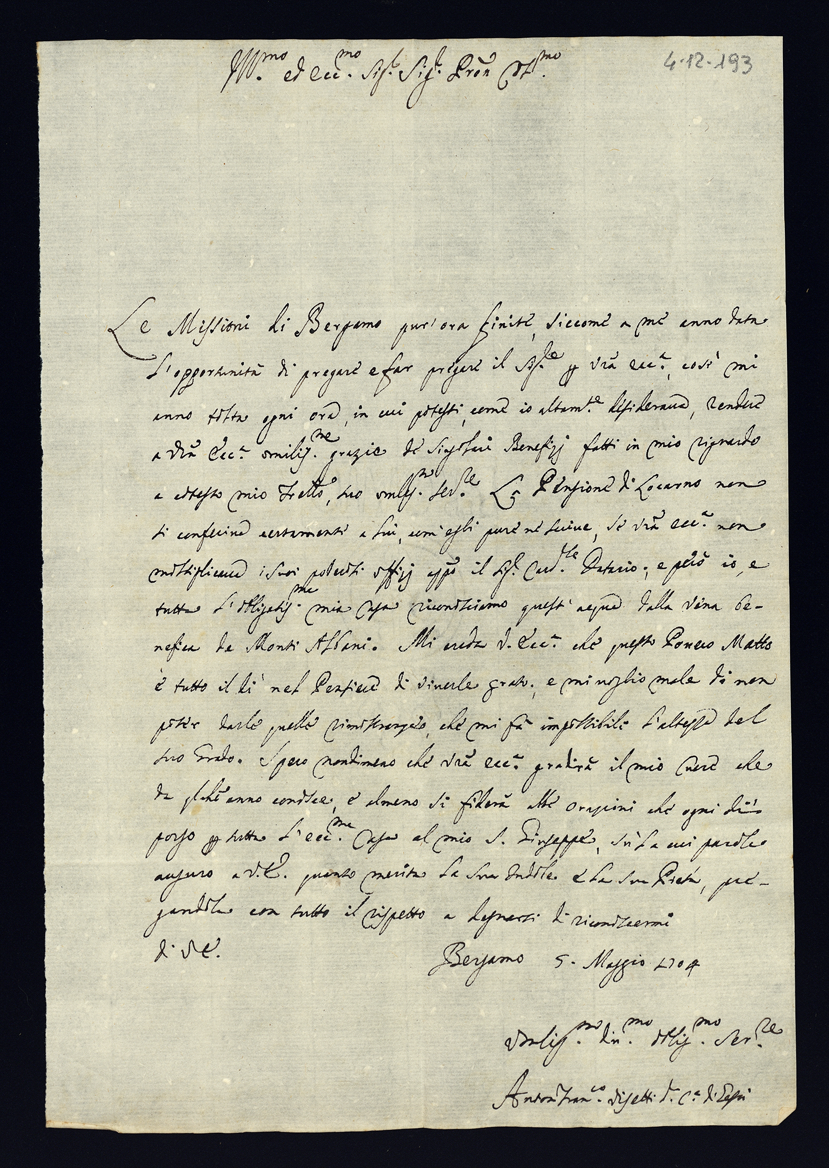 4.12.193
Ill.mo ed Ecc.mo Sig.r Sig.r Pron Col.mo
Le Missioni di Bergamo pur'ora finite, siccome a me anno data
l'opportunità di pregare e far pregare il Sig.re p Vrã Ecc.a, così mi
anno tolta ogni ora, in cui potessi, come io altam.te desiderava, rendere
a Vrã Ecc.a umiliss.me grazie de singolari Benefizj fatti in mio riguardo
a cotesto mio Frello, suo umiliss.mo ser.re La Pensione di Locarno non
si conferiva certamente a lui, com'egli pure ne scrive, se Vrã Ecc.a non
moltiplicava i suoi potenti offizj appo il Sig.r Card.le Datario; e però io, e
tutta l'obligatiss.ma mia Casa riconosciamo quest'acqua dalla vena be-
nefica de Monti Albani. Mi creda V. Ecc.a che questo Povero Matto
è tutto il dì nel Pensiere di viverle grato, e mi voglio male di non
poter darle quelle rimostranze, che mi fa impossibili l'altezza del
suo Grado. Spero nondimeno che Vrã Ecc.a gradirà il mio Cuore che
da qlche anno conosce, e almeno si fiderà alle orazioni che ogni dì
porgo p tutta l'Ecc.ma Casa al mio S. Giuseppe, sù la cui parola
auguro a V.E. quanto merita la sua Indole e la sua Pietà, pre-
gandola con tutto il rispetto a degnarsi di riconoscermi
di V.E.
Bergamo 5. Maggio 1704
Umiliss.mo div.mo obblig.mo Ser.re
Anton Fran.co d. C.a di Gesù